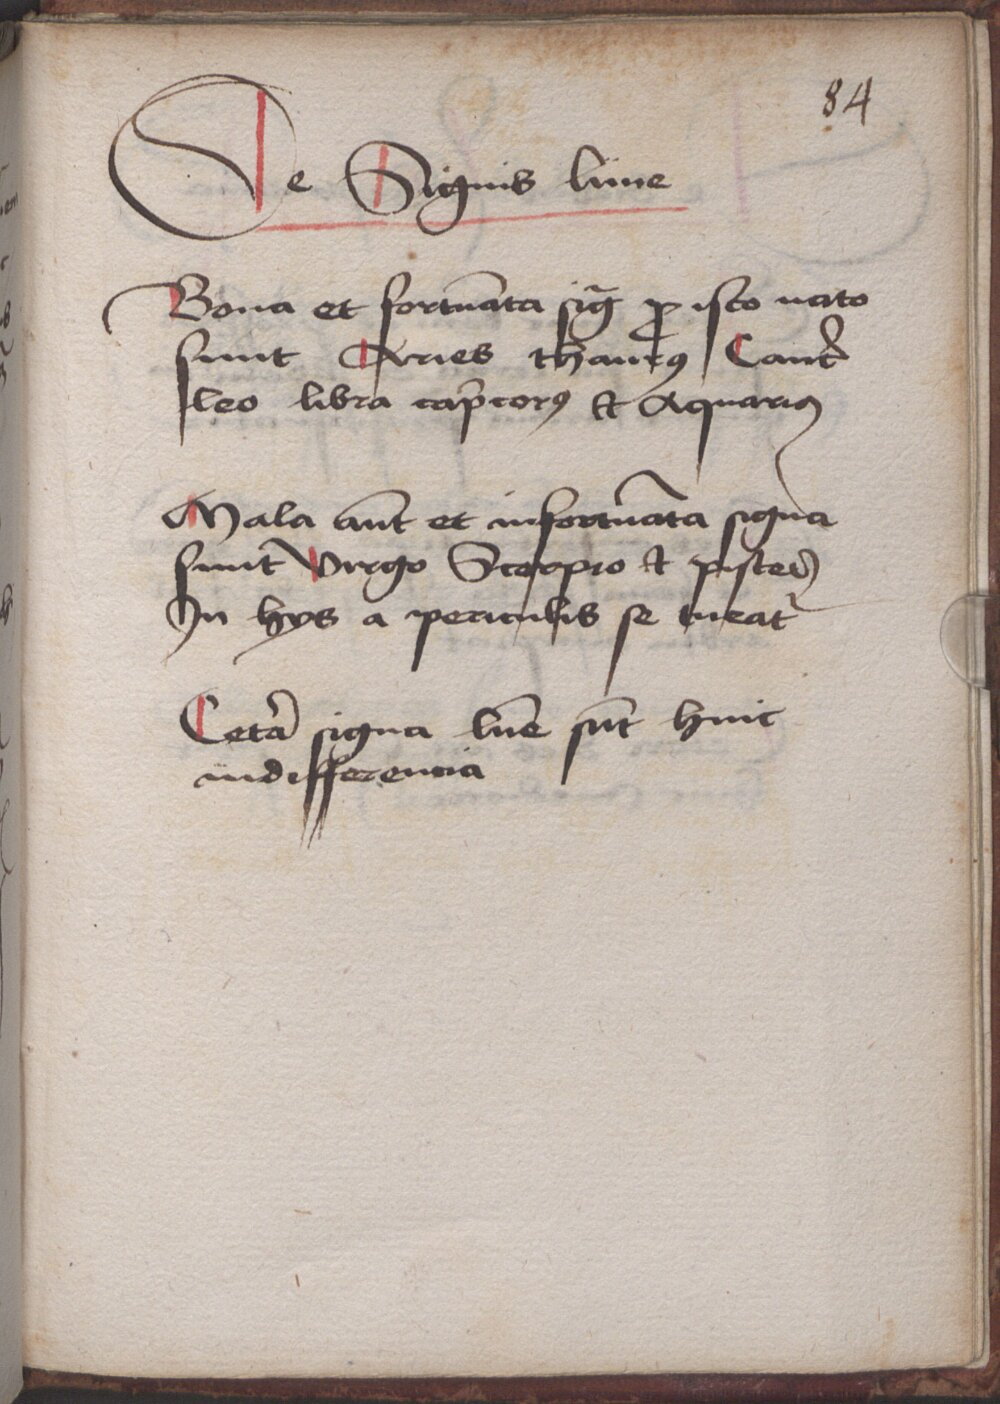 84
De Signis lune
Bona et fortunata sig̃ p isto nato
sunt Aries thaurꝰ Cancẽ
leo libra cap̃cornꝰ et Aquariꝰ
Mala aut̃ et infortunata signa
sunt Virgo Scorpio et pisces
In hys a periculis se tueat᷑
Cetã signa lũe sũt huic
indifferencia